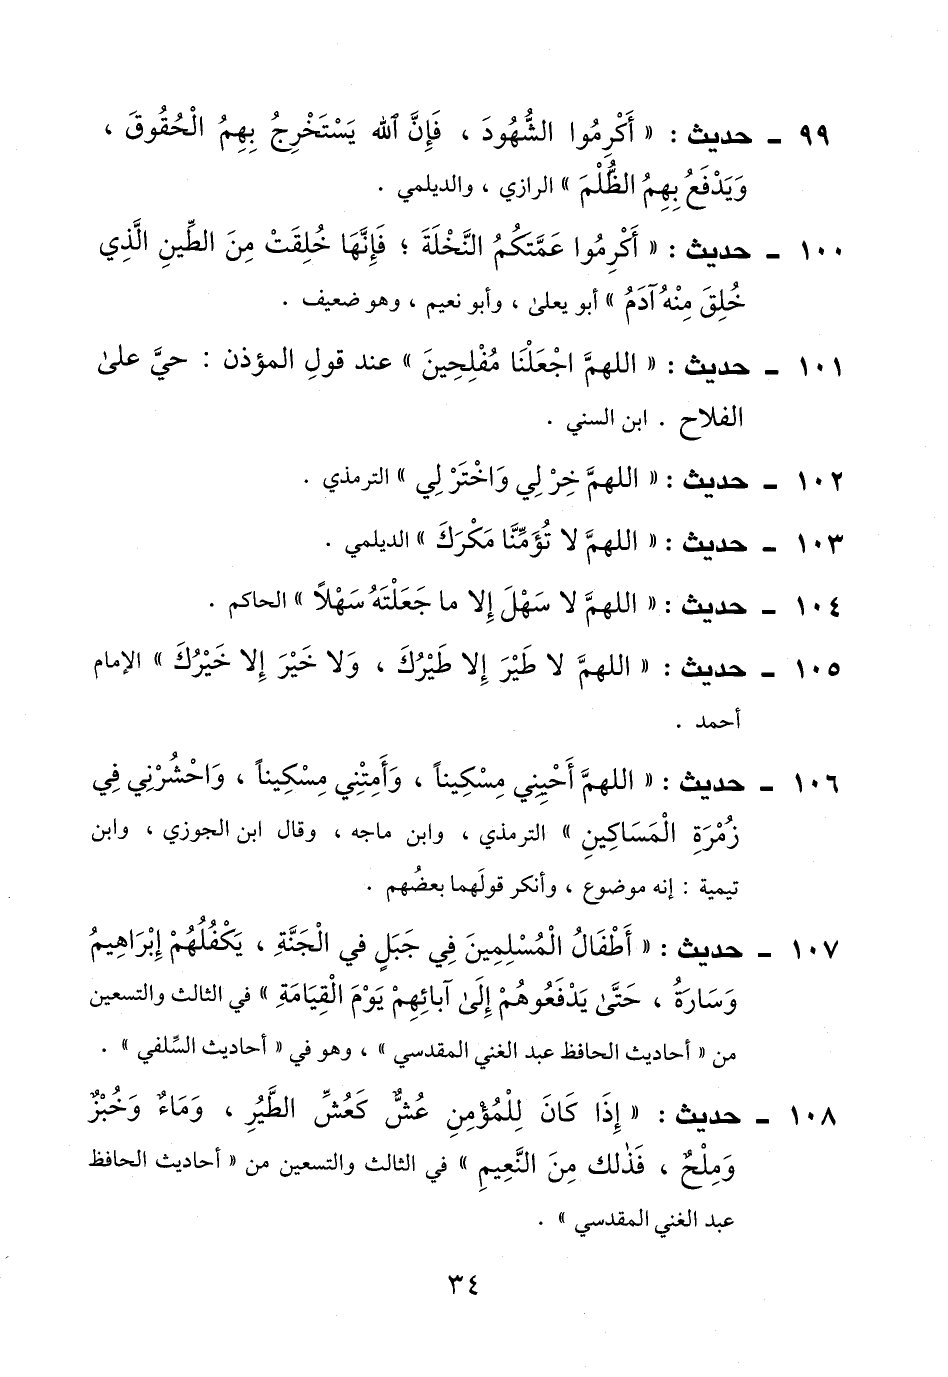 ٩٩ ـ حديث : « أَكْرِمُوا الشُّهُودَ ، فَإِنَّ ٱلله يَسْتَخْرِجُ بِهِمُ الْحُقُوقَ ،
وَيَدْفَعُ بِهِمُ الظُّلْمَ » الرازي ، والديلمي .
١٠٠ ـ حديث : « أَكْرِمُوا عَمَّتَكُمُ النَّخْلَةَ ؛ فَإِنَّهَا خُلِقَتْ مِنَ الطِّينِ الَّذِي
خُلِقَ مِنْهُ آدَمُ » أبو يعلىٰ ، وأبو نعيم ، وهو ضعيف .
١٠١ ـ حديث : « اللهمَّ اجْعَلْنَا مُفْلِحِينَ » عند قولِ المؤذن : حيَّ علىٰ
الفلاح . ابن السني .
١٠٢ ـ حديث : « اللهمَّ خِرْ لِي وَاخْتَرْ لِي » الترمذي .
١٠٣ ـ حديث : « اللهمَّ لا تُؤَمِّنَّا مَكْرَكَ » الديلمي .
١٠٤ ـ حديث : « اللهمَّ لا سَهْلَ إِلا ما جَعَلْتَهُ سَهْلاً » الحاكم .
١٠٥ ـ حديث : « اللهمَّ لا طَيْرَ إِلا طَيْرُكَ ، وَلا خَيْرَ إِلا خَيْرُكَ » الإمام
أحمد .
١٠٦ ـ حديث : « اللهمَّ أَحْيِنِي مِسْكِيناً ، وَأَمِتْنِي مِسْكِيناً ، وَاحْشُرْنِي فِي
زُمْرَةِ الْمَسَاكِينِ » الترمذي ، وابن ماجه ، وقال ابن الجوزي ، وابن
تيمية : إنه موضوع ، وأنكر قولَهما بعضُهم .
١٠٧ ـ حديث : « أَطْفَالُ الْمُسْلِمِينَ فِي جَبَلٍ في الْجَنَّةِ ، يَكْفُلُهُمْ إِبْرَاهِيمُ
وَسَارَةُ ، حَتَّىٰ يَدْفَعُوهُمْ إِلَىٰ آبائِهِمْ يَوْمَ الْقِيَامَةِ » في الثالث والتسعين
من « أحاديث الحافظ عبد الغني المقدسي » ، وهو في « أحاديث السِّلفي » .
١٠٨ ـ حديث : « إِذَا كَانَ لِلْمُؤْمِنِ عُشٌّ كَعُشِّ الطَّيْرِ ، وَمَاءٌ وَخُبْزٌ
وَمِلْحٌ ، فَذٰلك مِنَ النَّعِيمِ » في الثالث والتسعين من « أحاديث الحافظ
عبد الغني المقدسي » .
٣٤